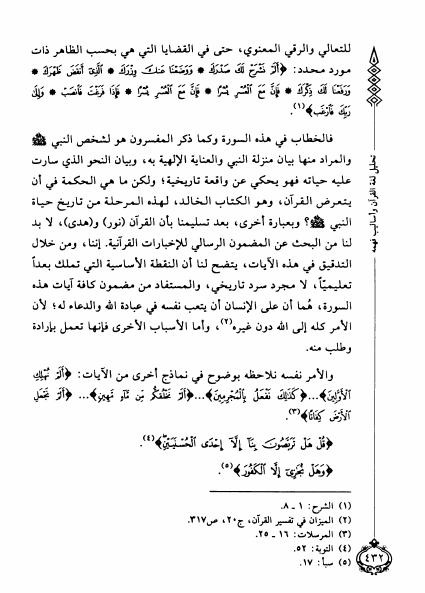 للتعالي والرقي المعنوي، حتى في القضايا التي هي بحسب الظاهر ذات
مورد محدد: ﴿أَلَمْ نَشْرَحْ لَكَ صَدْرَكَ * وَوَضَعْنَا عَنكَ وِزْرَكَ * الَّذِي أَنقَضَ ظَهْرَكَ *
وَرَفَعْنَا لَكَ ذِكْرَكَ * فَإِنَّ مَعَ الْعُسْرِ يُسْرًا * إِنَّ مَعَ الْعُسْرِ يُسْرًا * فَإِذَا فَرَغْتَ فَانصَبْ * وَإِلَى
رَبِّكَ فَارْغَب﴾(١).
فالخطاب في هذه السورة وكما ذكر المفسرون هو لشخص النبي ﷺ
والمراد منها بيان منزلة النبي والعناية الإلهية به، وبيان النحو الذي سارت
عليه حياته فهو يحكي عن واقعة تاريخية؛ ولكن ما هي الحكمة في أن
يتعرض القرآن، وهو الكتاب الخالد، لهذه المرحلة من تاريخ حياة
النبي ﷺ؟ وبعبارة أخرى، بعد تسليمنا بأن القرآن (نور) و(هدى)، لا بد
لنا من البحث عن المضمون الرسالي للإخبارات القرآنية. إننا، ومن خلال
التدقيق في هذه الآيات، يتضح لنا أن النقطة الأساسية التي تملك بعداً
تعليميّاً، لا مجرد سرد تاريخي، والمستفاد من مضمون كافة آيات هذه
السورة، هُما أن على الإنسان أن يتعب نفسه في عبادة الله والدعاء له؛ لأن
الأمر كله إلى الله دون غيره(٢)، وأما الأسباب الأخرى فإنها تعمل بإرادة
وطلب منه.
والأمر نفسه نلاحظه بوضوح في نماذج أخرى من الآيات: ﴿أَلَمْ نُهْلِكِ
الْأَوَّلِينَ﴾...﴿كَذَلِكَ نَفْعَلُ بِالْمُجْرِمِينَ﴾...﴿أَلَمْ نَخْلُقكُّم مِّن مَّاءٍ مَّهِينٍ﴾...﴿أَلَمْ نَجْعَلِ
الْأَرْضَ كِفَاتًا﴾(٣).
﴿قُلْ هَلْ تَرَبَّصُونَ بِنَا إِلَّا إِحْدَى الْحُسْنَيَيْنِ﴾(٤).
﴿وَهَلْ نُجَازِي إِلَّا الْكَفُورَ﴾(٥).
(١) الشرح: ١ ـ ٨.
(٢) الميزان في تفسير القرآن، ج٢٠، ص٣١٧.
(٣) المرسلات: ١٦ ـ ٢٥.
(٤) التوبة: ٥٢.
(٥) سبأ: ١٧.
تحليل لغة القرآن وأساليب فهمه
٤٣٢